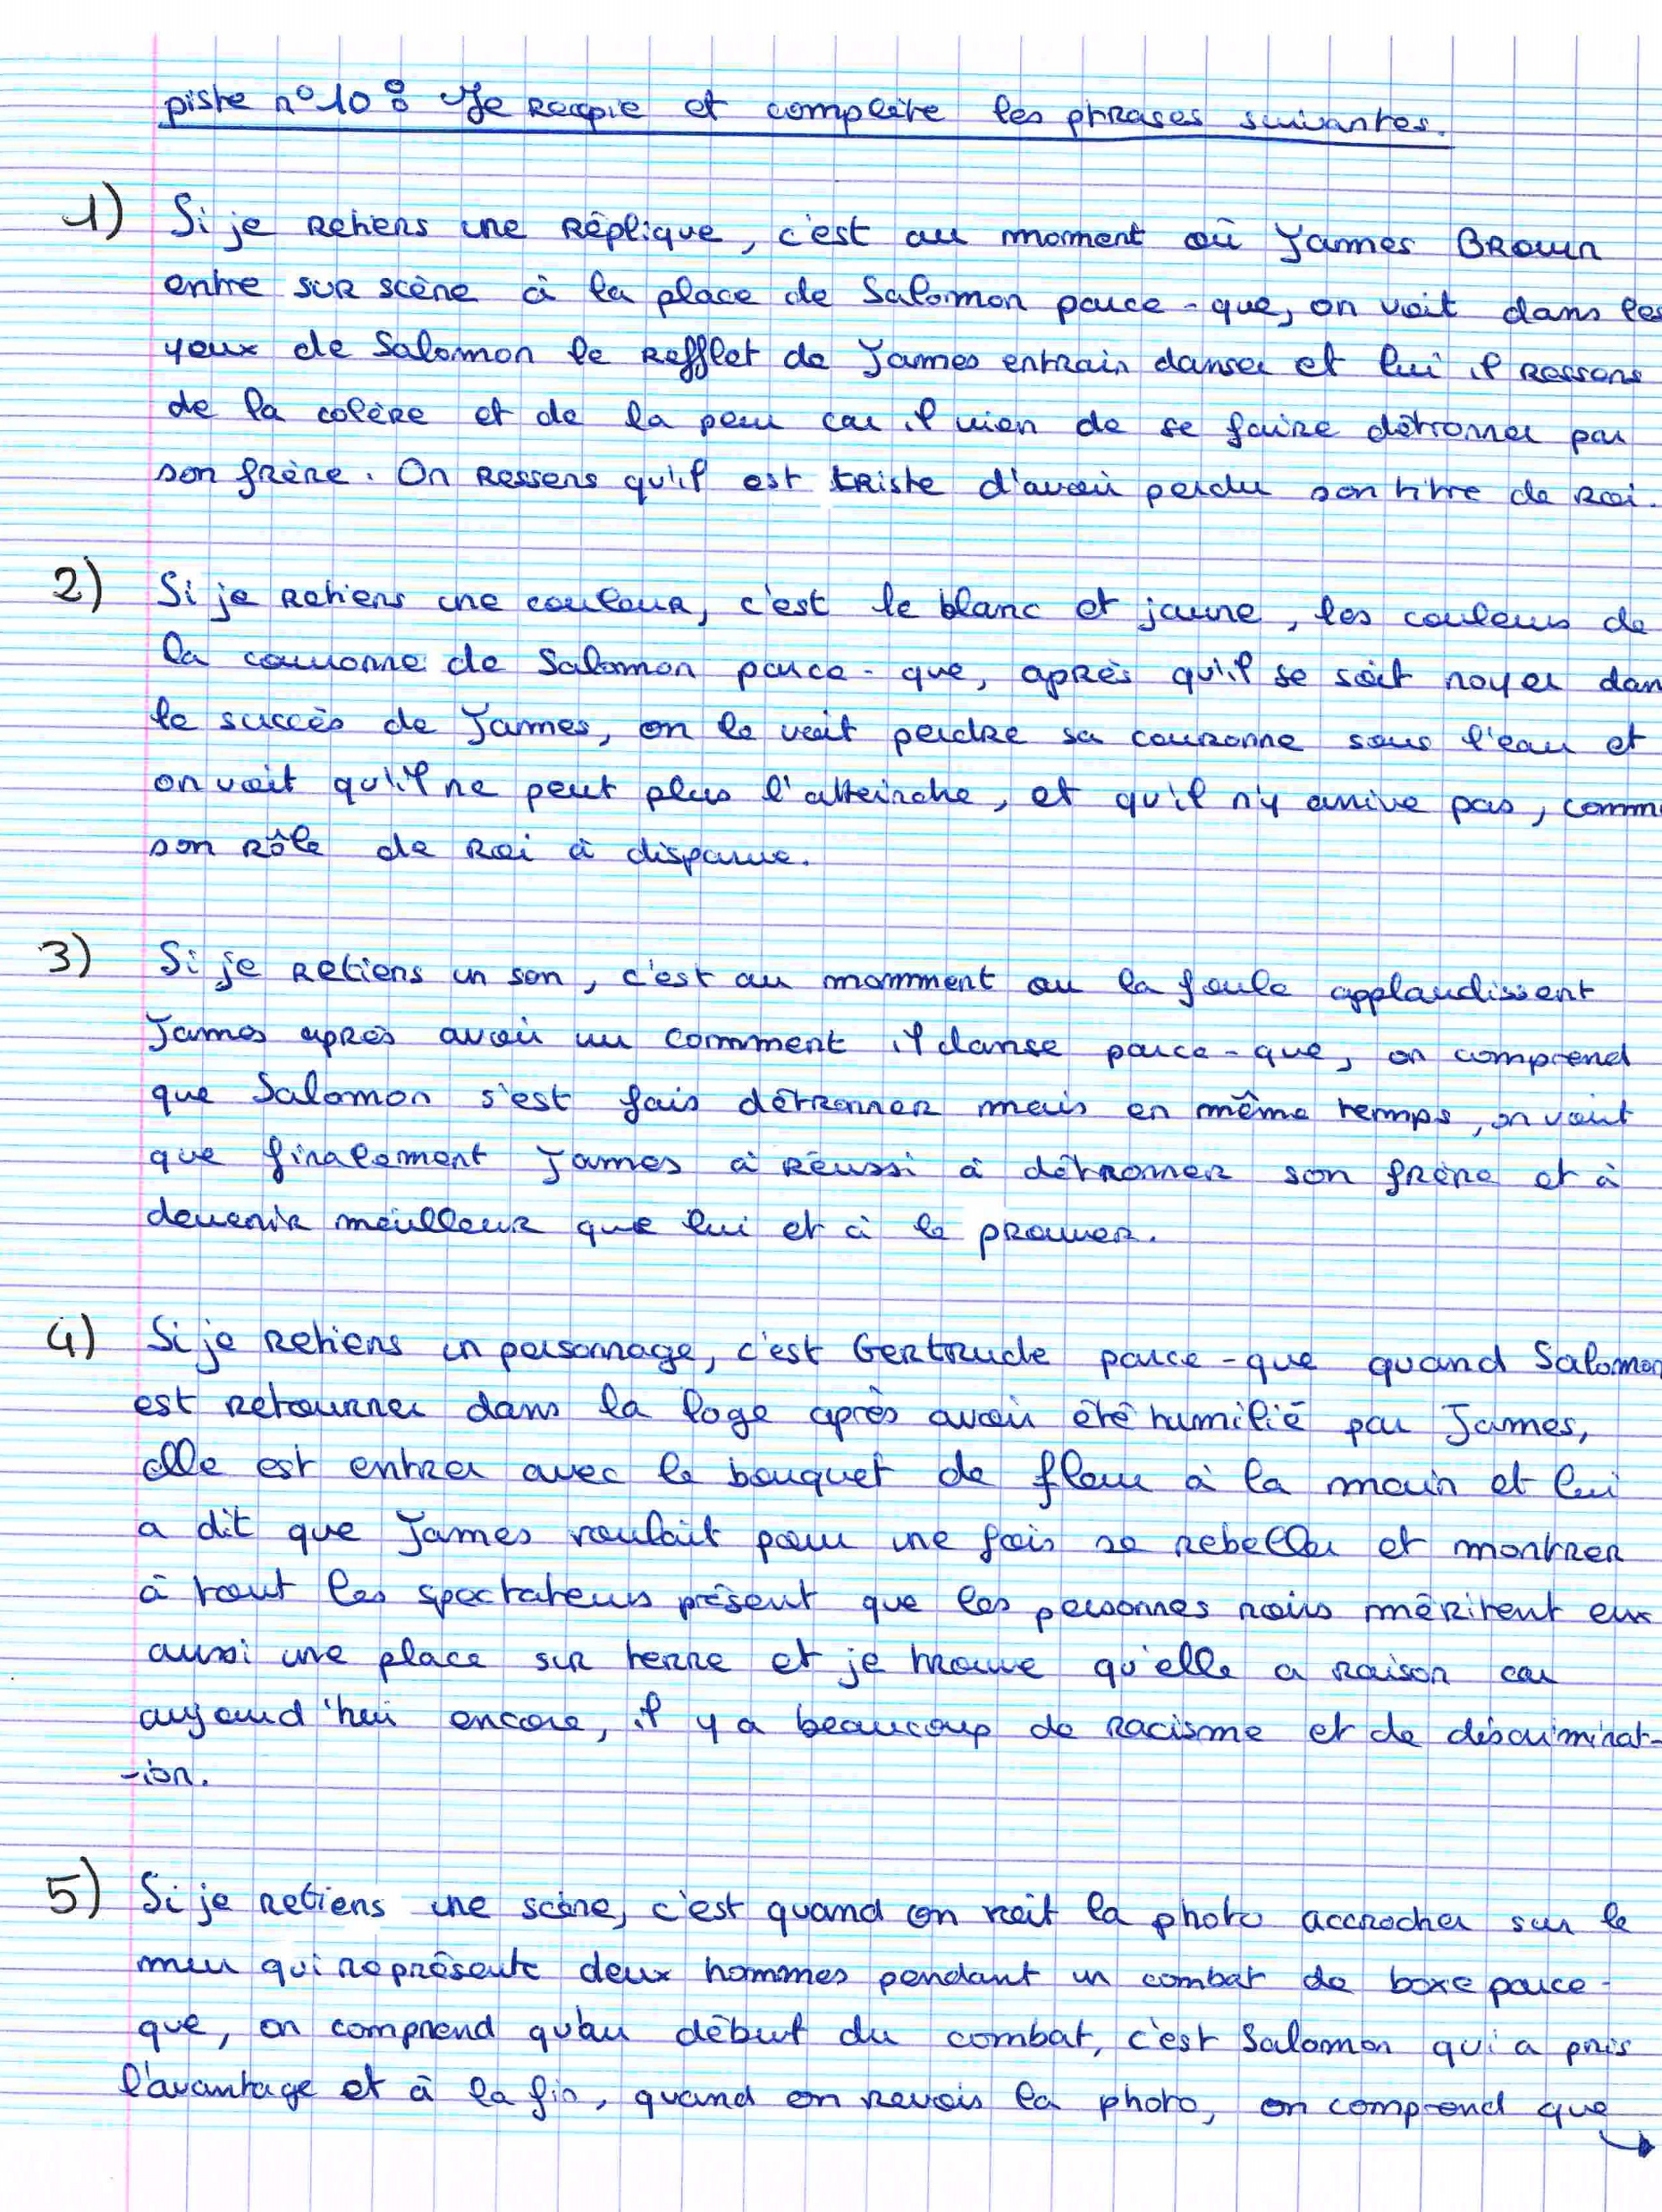 piste n°10 : Je recopie et complète les phrases suivantes.
1) Si je retiens une réplique, c'est au moment où James Brown
entre sur scène à la place de Salomon parce-que, on voit dans les
yeux de Salomon le refflet de James entrain danser et lui il ressens
de la colère et de la peur car il vien de se faire détronner par
son frère. On ressens qu'il est triste d'avoir perdu son titre de roi.
2) Si je retiens une couleur, c'est le blanc et jaune, les couleurs de
la couronne de Salomon parce-que, après qu'il se soit noyer dan
le succès de James, on le voit perdre sa couronne sous l'eau et
on voit qu'il ne peut plus l'atteindre, et qu'il n'y arrive pas, comm
son rôle de roi à disparue.
3) Si je retiens un son, c'est au momment ou la foule applaudissent
James après avoir vu comment il danse parce-que, on comprend
que Salomon s'est fais détronner mais en même temps, on voit
que finalement James à réussi à détronner son frère et à
devenir meilleur que lui et à le prouver.
4) Si je retiens un personnage, c'est Gertrude parce-que quand Salomon
est retourner dans la loge après avoir été humilié par James,
elle est entrer avec le bouquet de fleur à la main et lui
a dit que James voulait pour une fois se rebeller et montrer
à tout les spectateurs présent que les personnes noirs méritent eux
aussi une place sur terre et je trouve qu'elle a raison car
aujourd'hui encore, il y a beaucoup de racisme et de discriminat-
-ion.
5) Si je retiens une scène, c'est quand on voit la photo accrocher sur le
mur qui représente deux hommes pendant un combat de boxe parce-
que, on comprend qu'au début du combat, c'est Salomon qui a pris
l'avantage et à la fin, quand on revois la photo, on comprend que